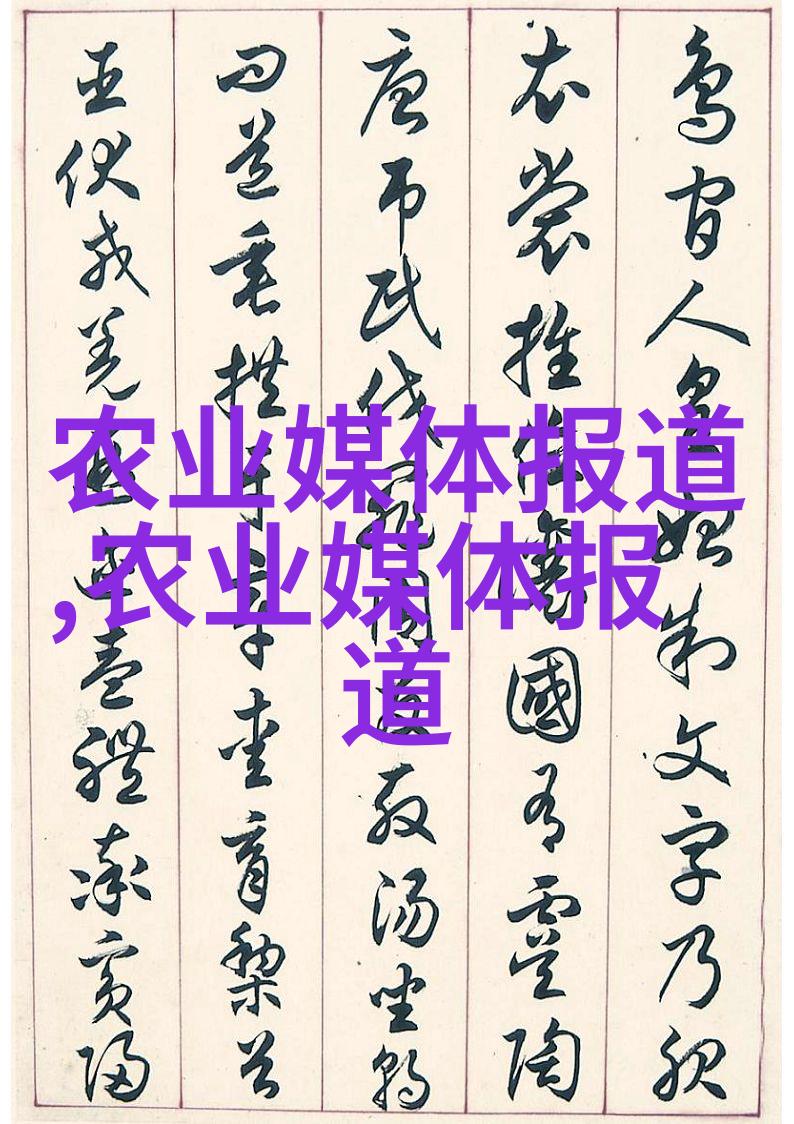 鳥官人皇始制文字乃服
衣裳推位讓國有虞陶
唐吊民伐罪周發殷湯坐朝
問道垂拱平章愛育黎首
臣伏戎羌遐邇壹體率賓歸
农业媒体报道
,农业媒体报
道